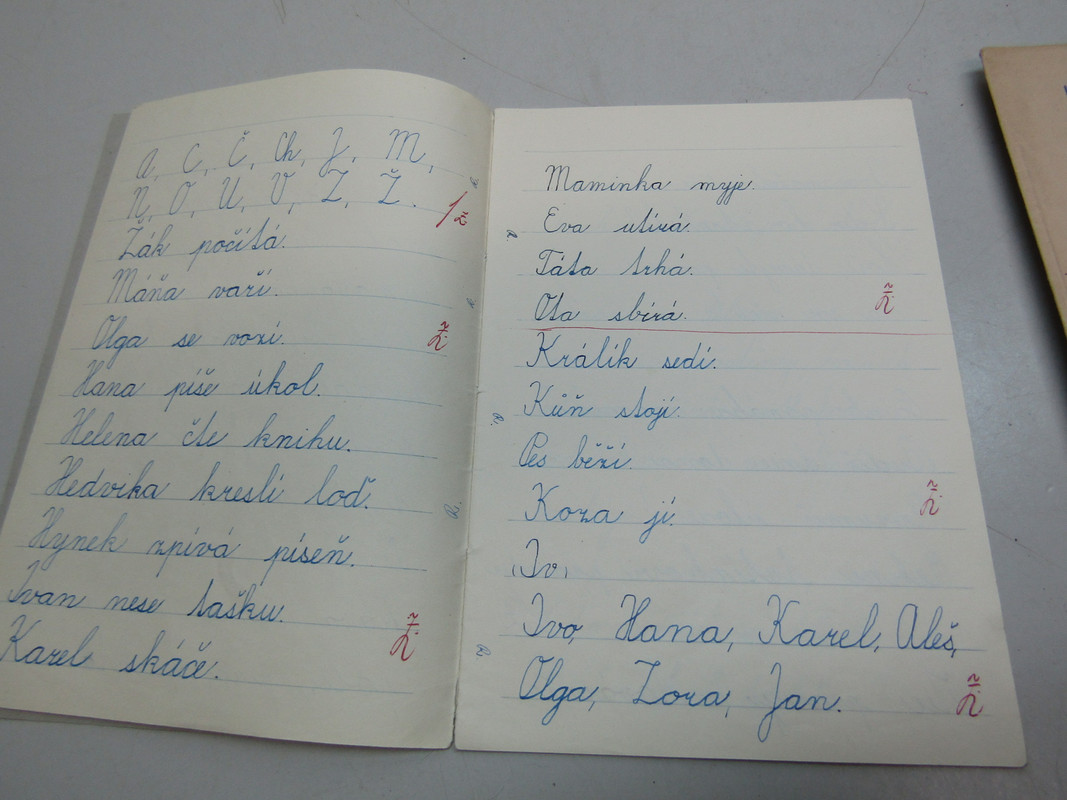 A, C, Č, Ch, J, M,
N, O, U, V, Z, Ž.
Žák počítá.
Máňa vaří.
Olga se vozí.
Hana píše úkol.
Helena čte knihu.
Hedvika kreslí loď.
Hynek zpívá píseň.
Ivan nese tašku.
Karel skáče.
Maminka myje.
Eva utírá.
Táta trhá.
Ota sbírá.
Králík sedí.
Kůň stojí.
Pes běží.
Koza jí.
(Iv)
Ivo, Hana, Karel, Aleš,
Olga, Zora, Jan.